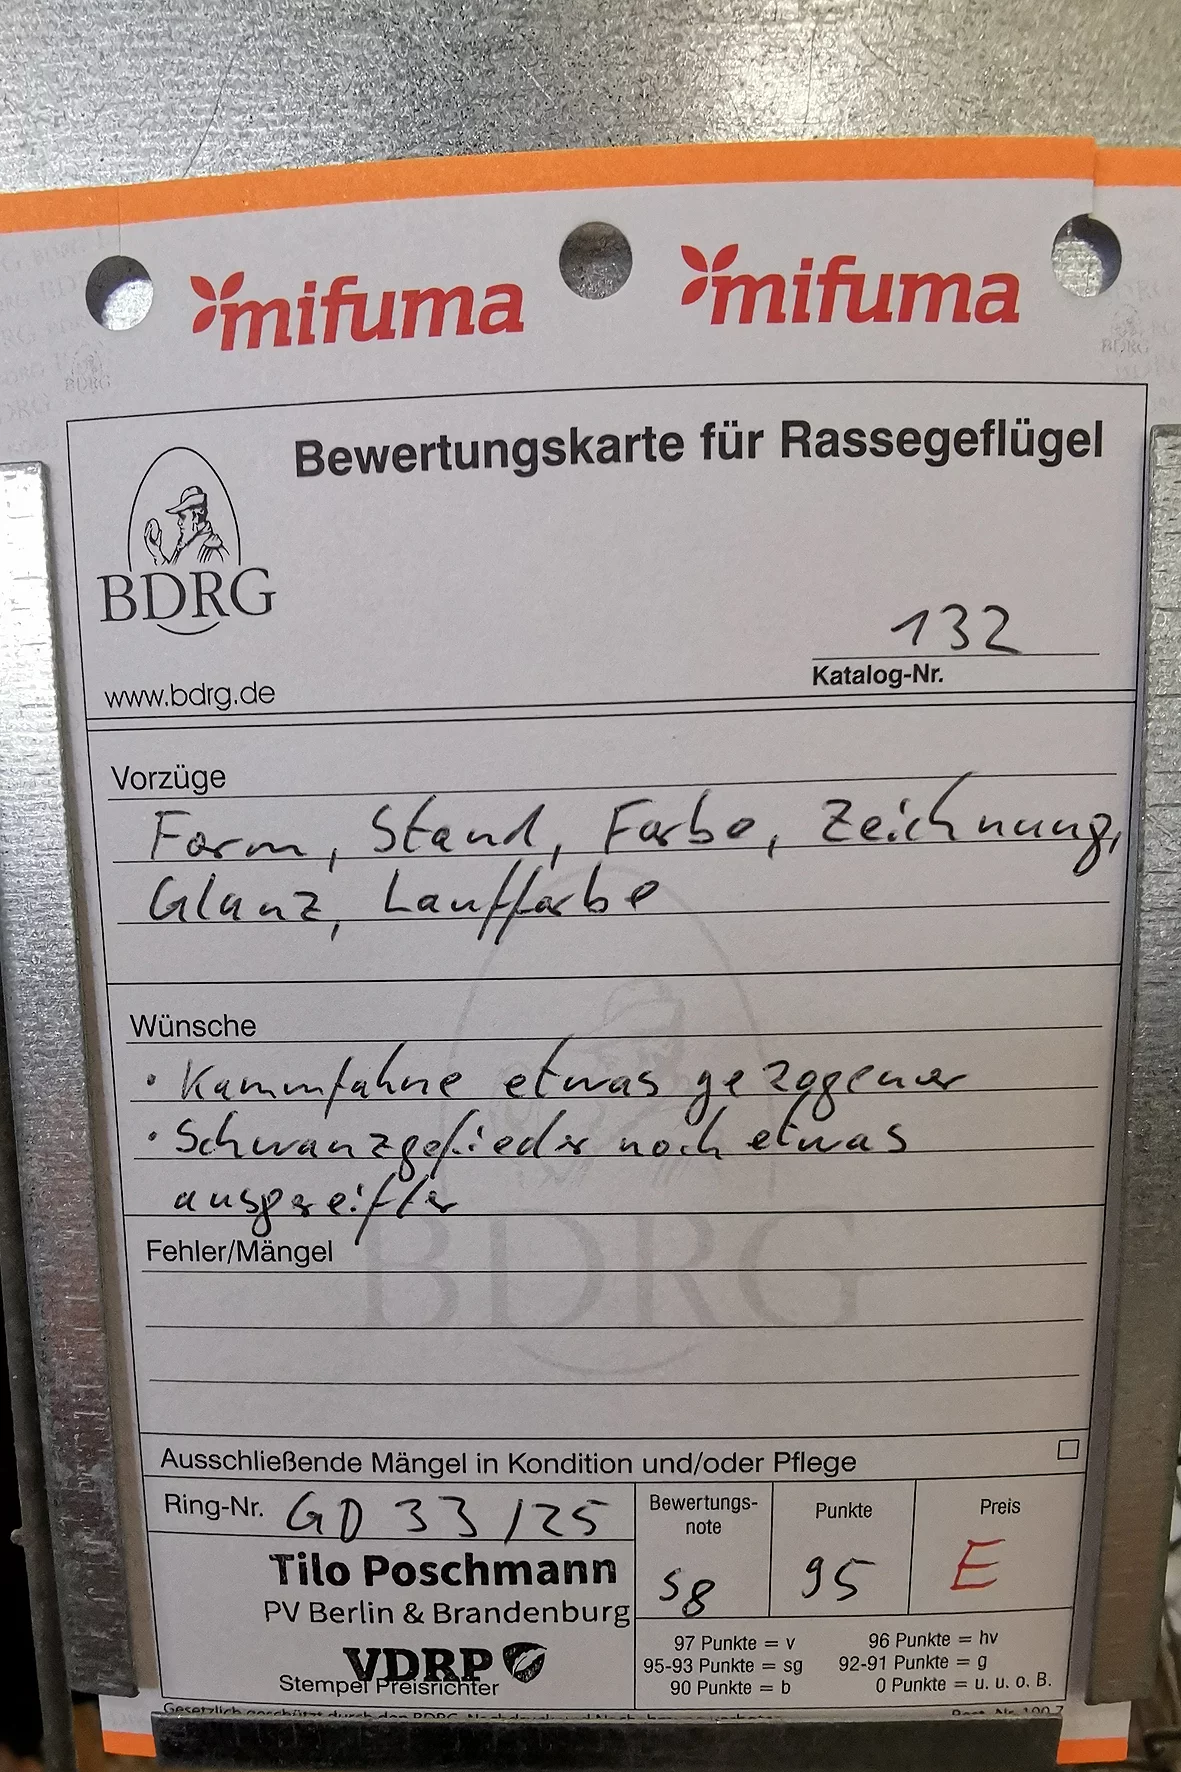 mifuma mifuma
Bewertungskarte für Rassegeflügel
BDRG
www.bdrg.de
132
Katalog-Nr.
Vorzüge
Form, Stand, Farbe, Zeichnung,
Glanz, Lauffarbe
Wünsche
· Kammfahne etwas gezogener
· Schwanzgefieder noch etwas
ausgereifter
Fehler/Mängel
BDRG
Ausschließende Mängel in Kondition und/oder Pflege
Ring-Nr. GD 33 /25
Bewertungs-
note
sg
Punkte
95
Preis
E
Tilo Poschmann
PV Berlin & Brandenburg
VDRP
Stempel Preisrichter
97 Punkte = v 96 Punkte = hv
95-93 Punkte = sg 92-91 Punkte = g
90 Punkte = b 0 Punkte = u. u. o. B.